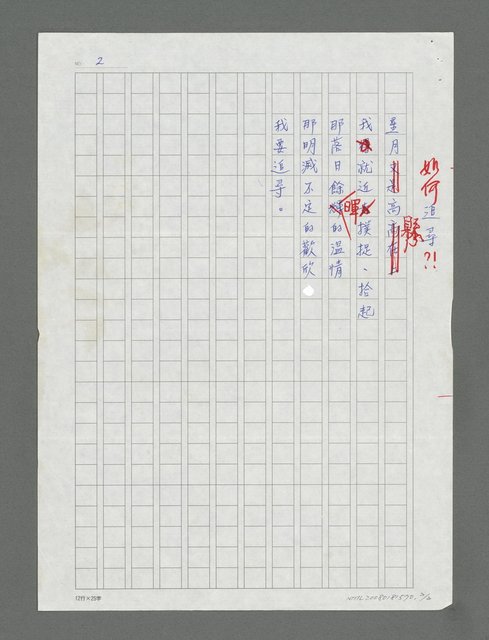 NO. 2
如何追尋?!
星月高高懸
我就近撲捉、拾起
那落日餘暉的溫情
那明滅不定的歡欣
我要追尋。
12行×25字